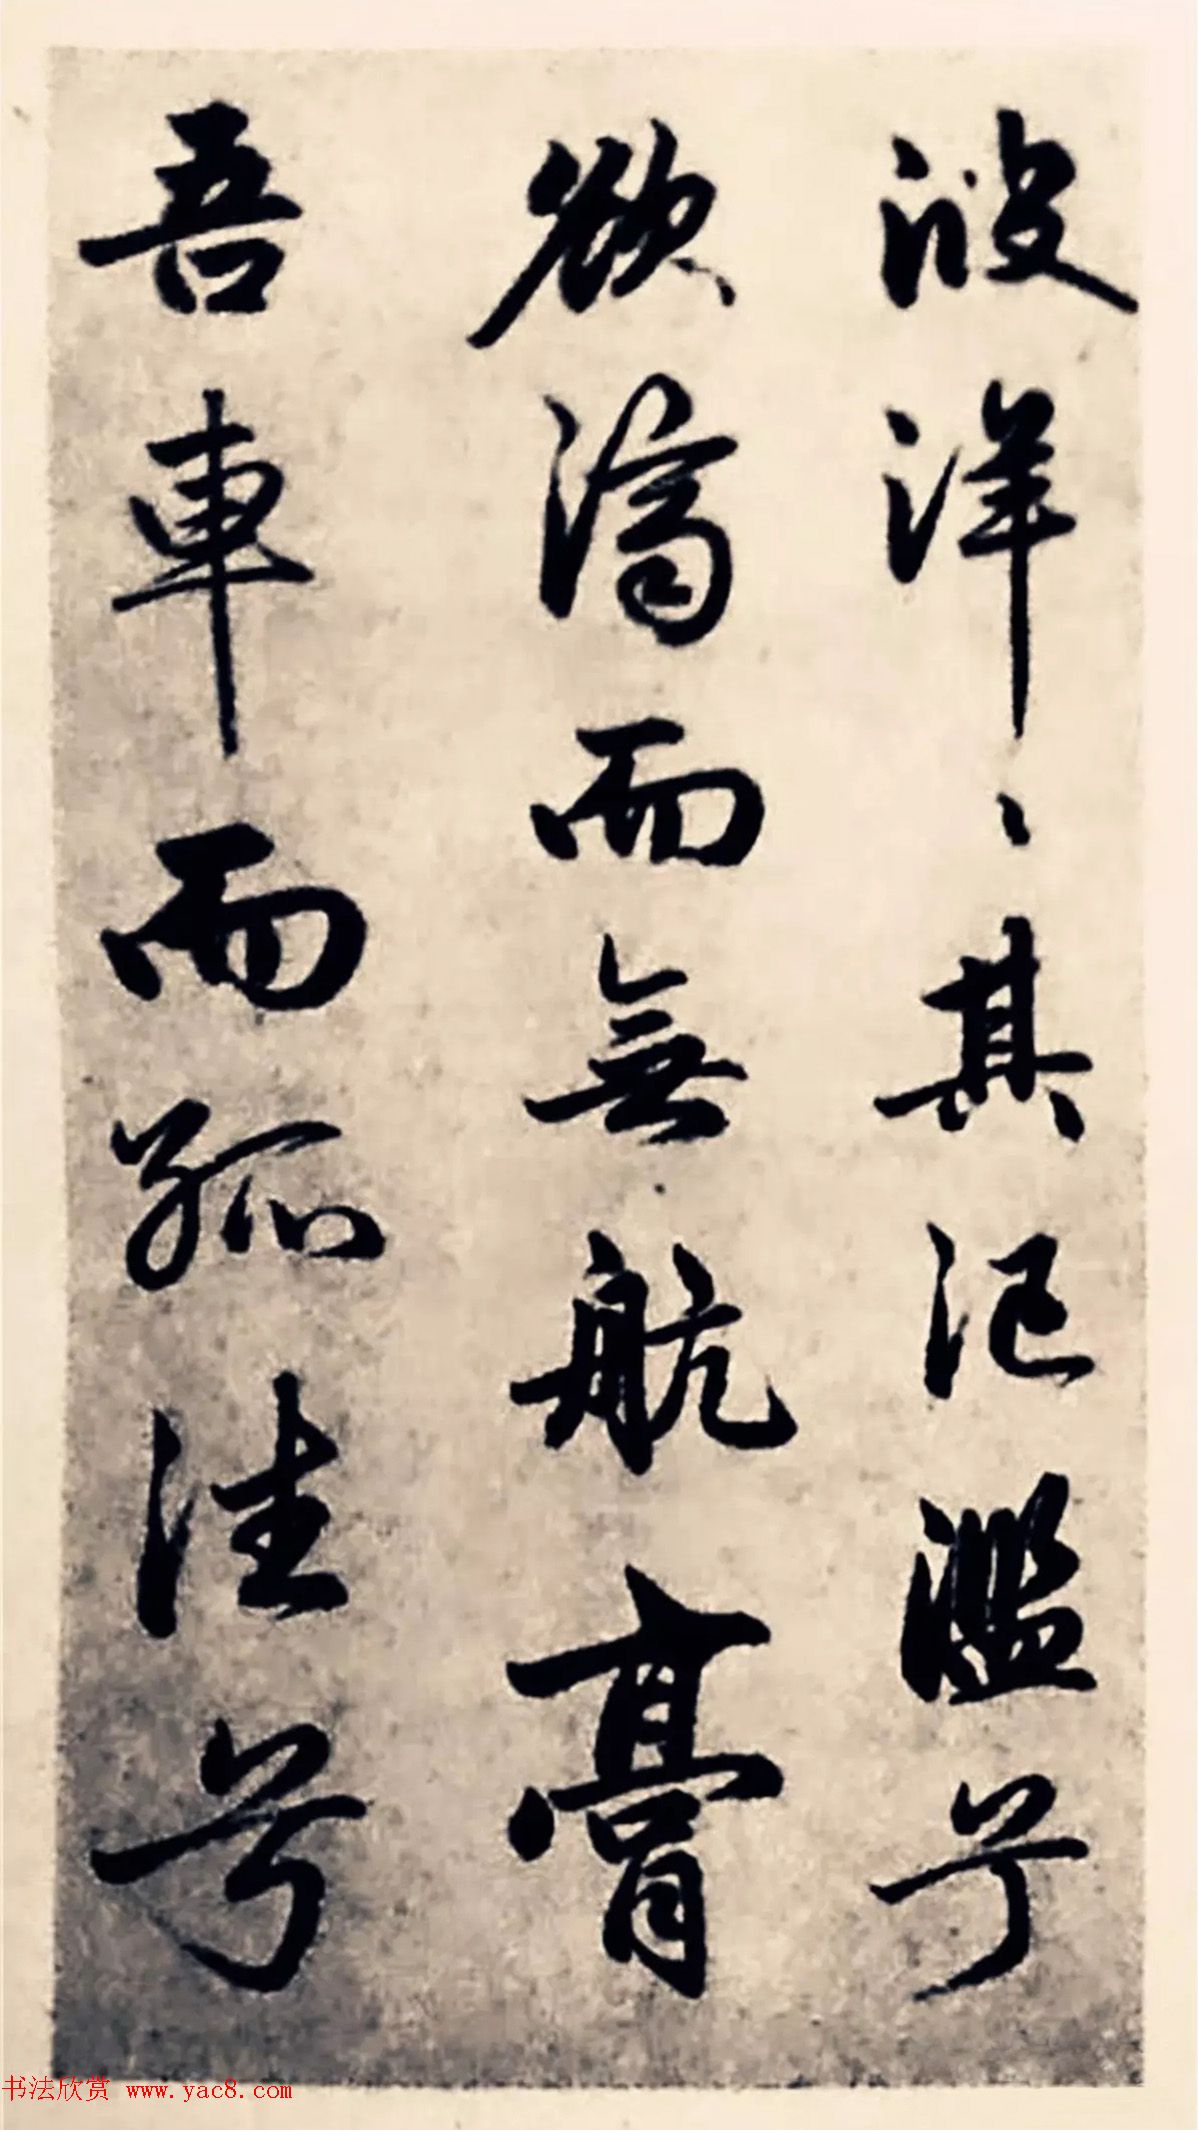 波洋〻其汜濫兮
欲濟而無航膏
吾車而孤往兮
书法欣赏 www.yac8.com